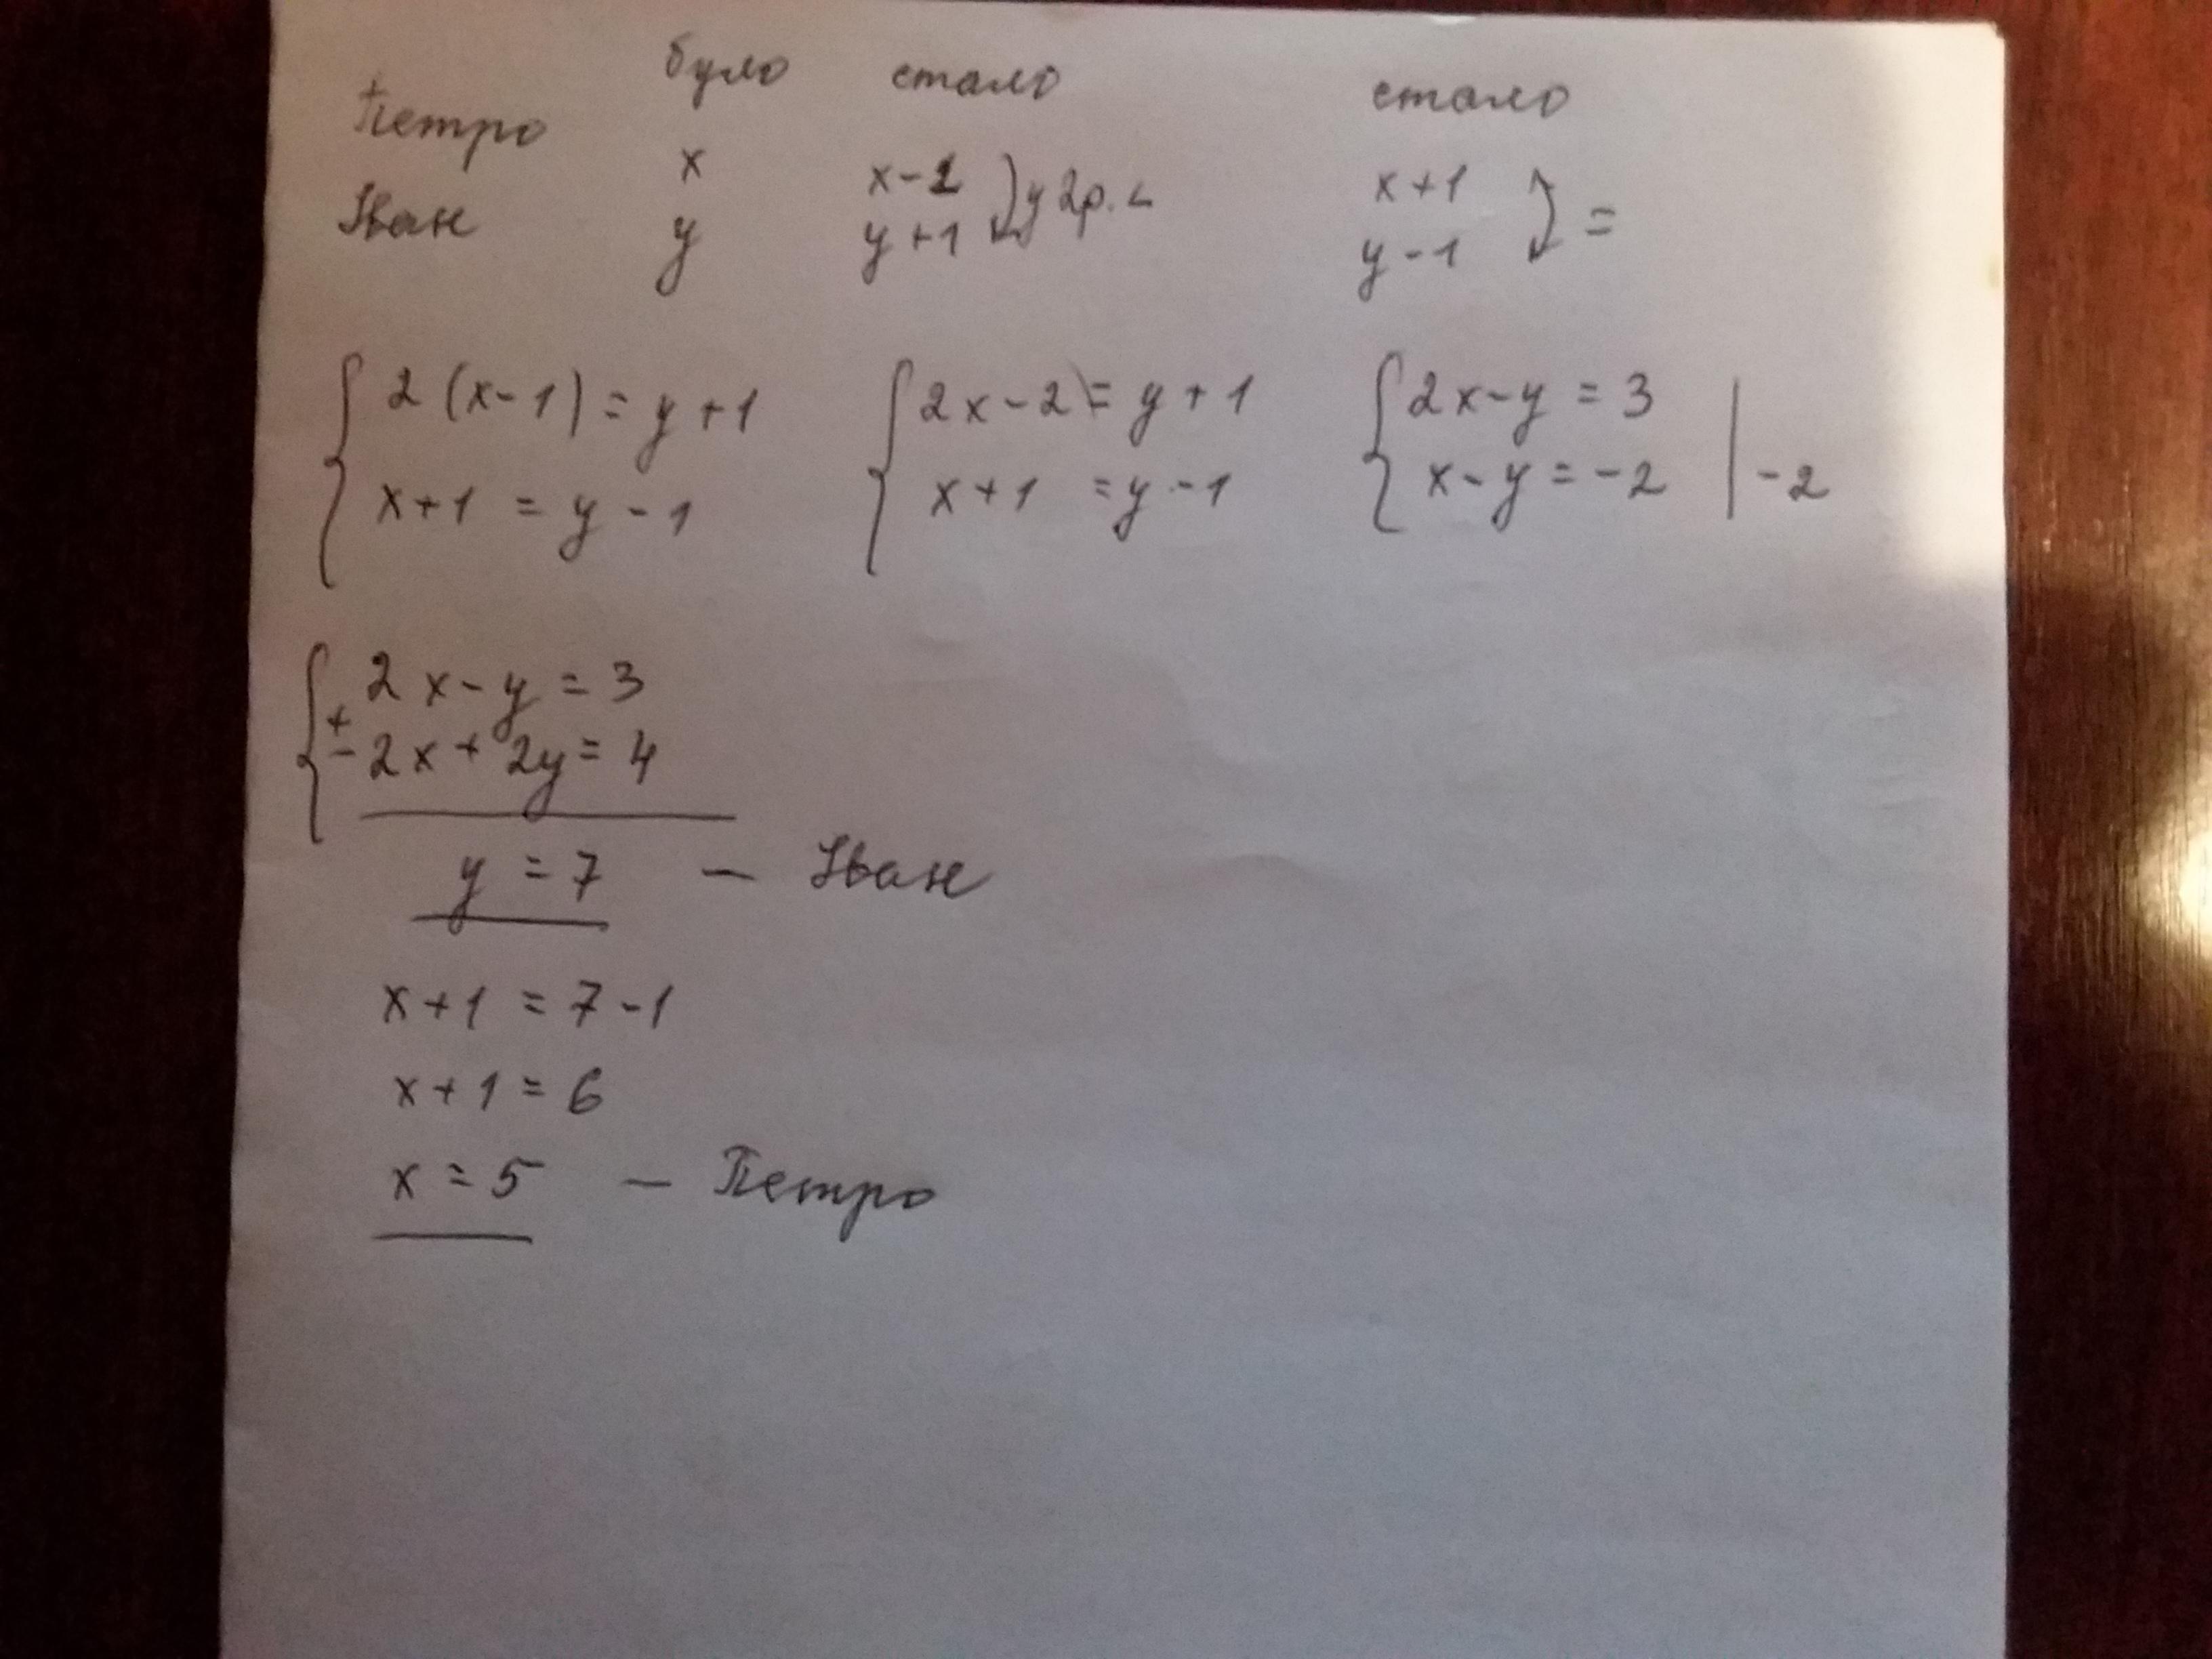 було стало стало
Петро x x-1 x+1
Іван y y+1 у 2р. < y-1 =
{ 2(x-1) = y+1 { 2x-2 = y+1 { 2x-y = 3
x+1 = y-1 x+1 = y-1 x-y = -2 | -2
{ 2x-y = 3
+
-2x+2y = 4
y = 7 — Іван
x+1 = 7-1
x+1 = 6
x = 5 — Петро